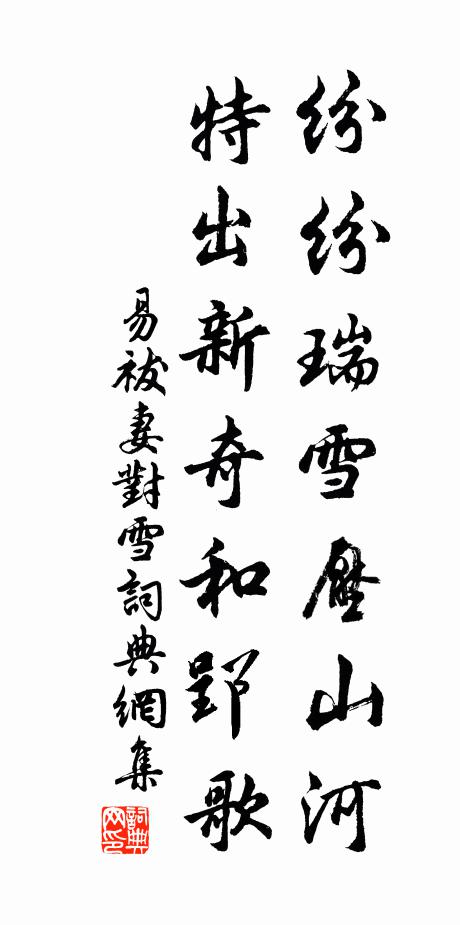 紛紛瑞雪壓山河
特出新奇和郢歌
易祓妻對雪詞典網集
詞典網印